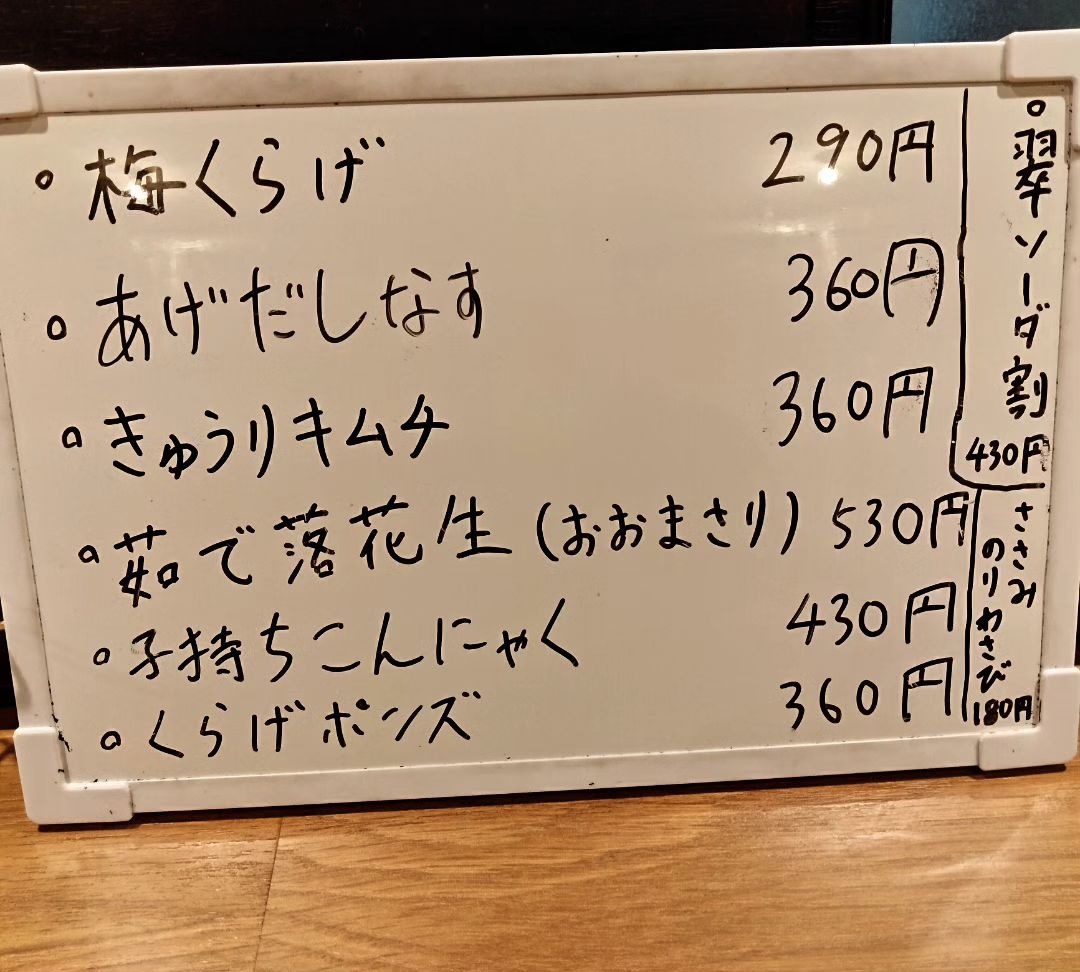 ○ 梅くらげ 290円
○ あげだしなす 360円
○ きゅうりキムチ 360円
○ 茹で落花生(おおまさり) 530円
○ 子持ちこんにゃく 430円
○ くらげポンズ 360円
○ 翠ソーダ割
430円
ささみ
のりわさび
180円